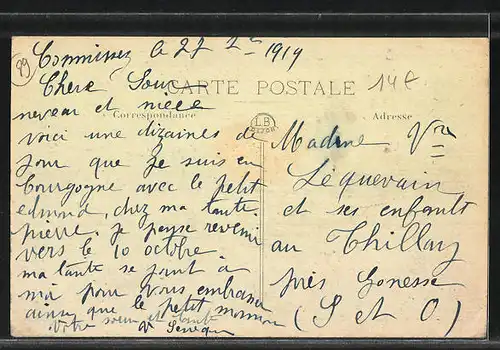 89
le 27 1919
Chere Soeur
CARTE POSTALE
14 €
neveu et niece
Correspondance
LB
Adresse
voici une dizaines de
jour que je suis en
bourgogne avec le petit
edmond, chez ma tante
pierre. je pense revenir
vers le 10 octobre
ma tante se joint à
moi pour vous embrasser
ainsi que le petit
Votre soeur et tante
Madame Vve
Lequevain
et ses enfants
au Thillay
près Gonesse
(S et O)